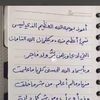 أعوذ بوجه الله العظيم الذي ليس
شيء أعظم منه وبكلمات الله التامات
التي لا يجاوزهن بر ولا فاجر
وبأسماء الله الحسنى كلها ما علمت
منها وما لم أعلم من شر ما خلق